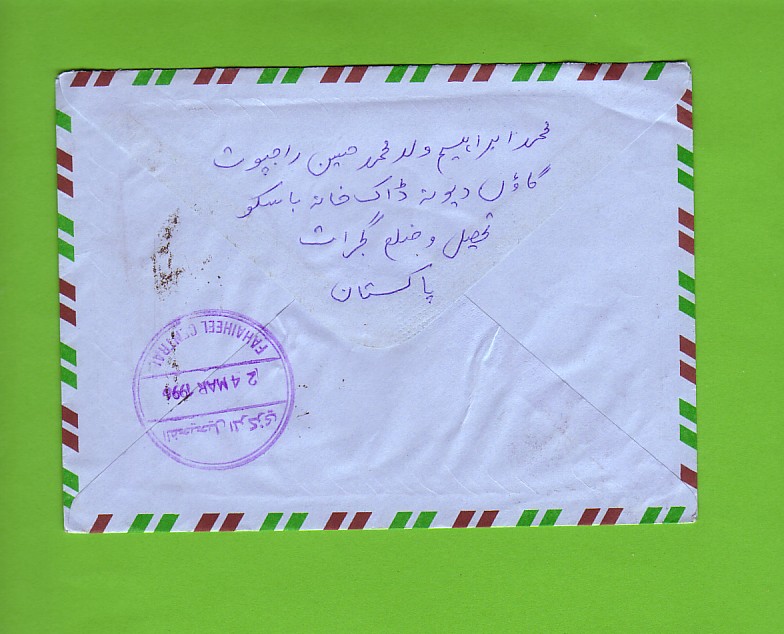 محمد ابراہیم ولد محمد حسین راجپوت
گاؤں دیونہ ڈاک خانہ باسکو
تحصیل و ضلع گجرات
پاکستان
FAHAIHEEL CENTRAL
24 MAR 1996
الفحيحيل المركزي